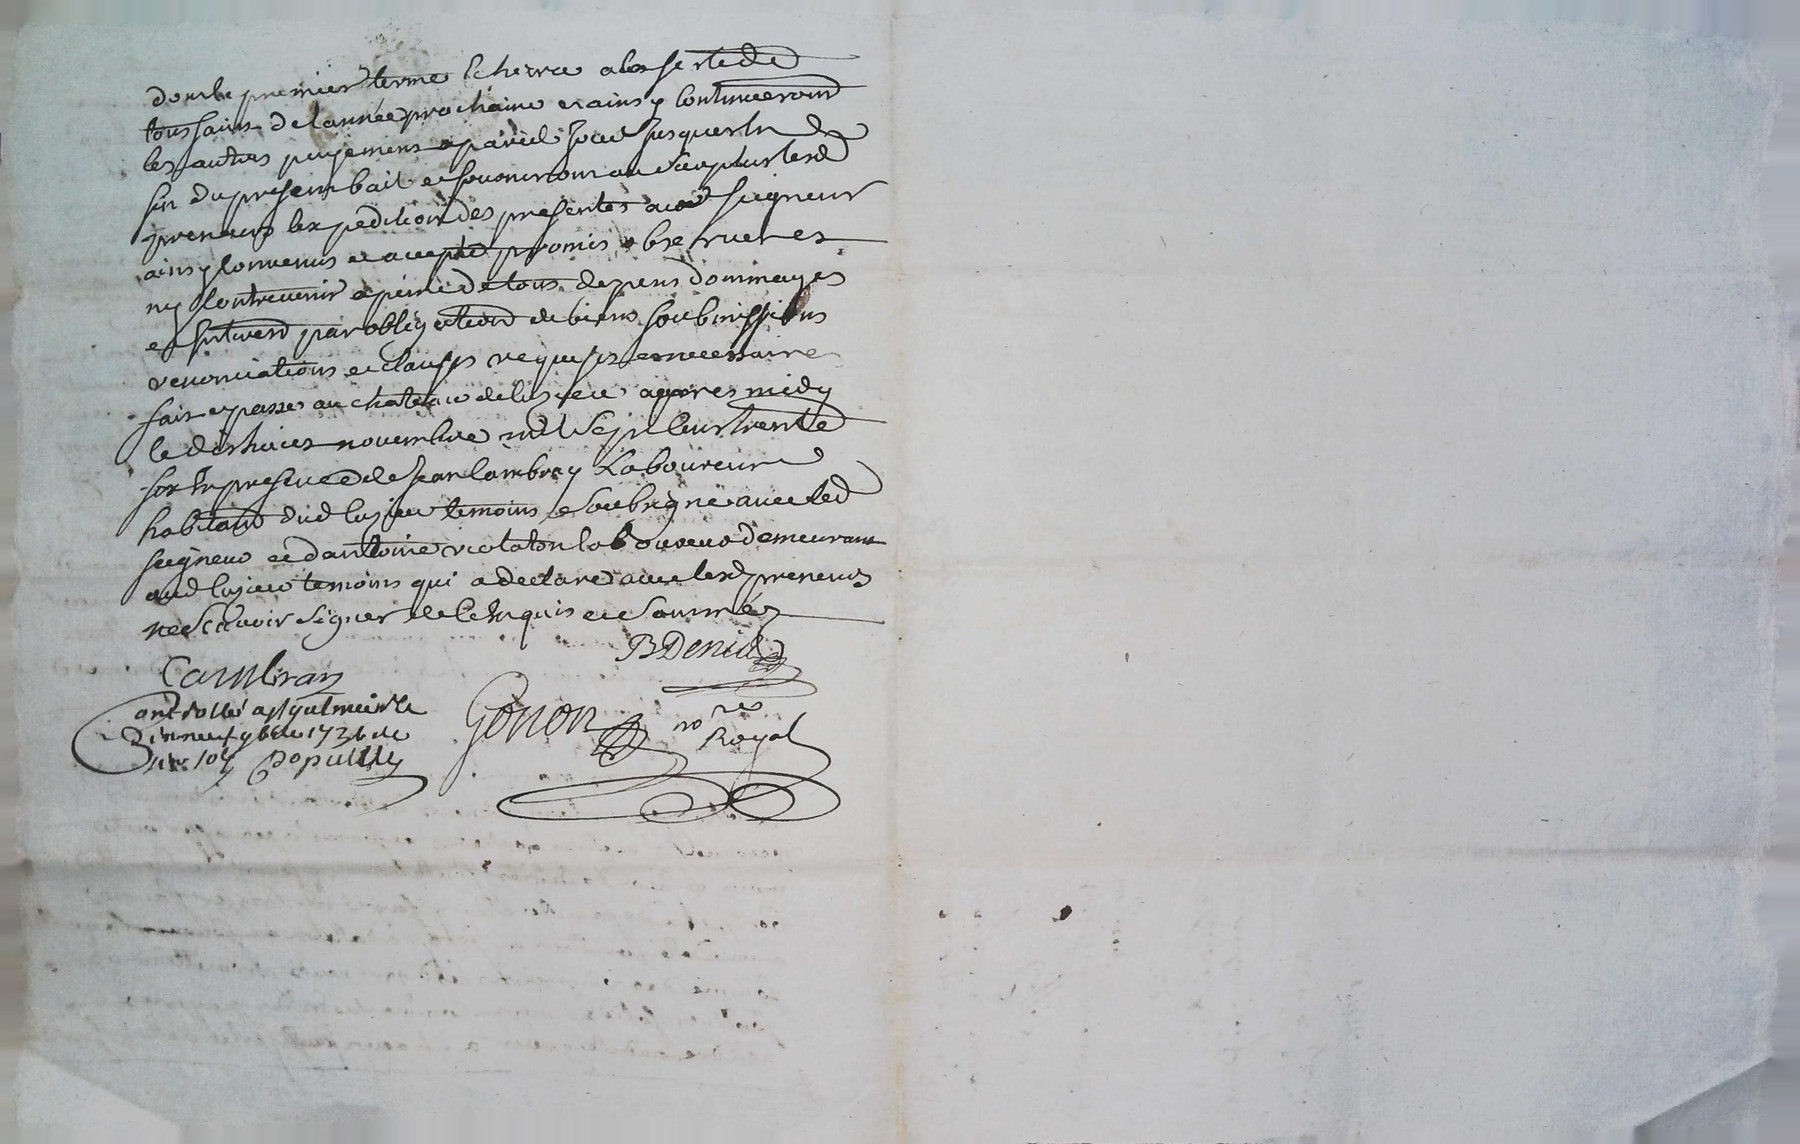 dont le premier terme Echerra a la feste de
toussains de lannée prochaine et ainsy Continueront
les autres payemens a pareil jour jusques la
fin du present bail et fourniront au surplus lesd
preneurs lexpedition des presentes aud seigneur
ainsy Convenus et accepté promis observer et
ny Contrevenir a peine de tous despens dommages
et par obligation de biens soubmissions
renonciations et clauses requises et necessaire
fait et passé au chateau de apres midy
le dixhuict novembre mil sept Cent trente
six En presence de Jean Cambray Laboureur
habitant dud temoins soubsigné avec led
seigneur et dantoine laboureur demeurant
aud temoins qui a declaré avec lesd preneurs
ne scavoir signer de ce Enquis et sommés
BDenis
Cambray
ontrollé a st galmier le
dixneuf 9bre 1736
Gonon no re
Royal